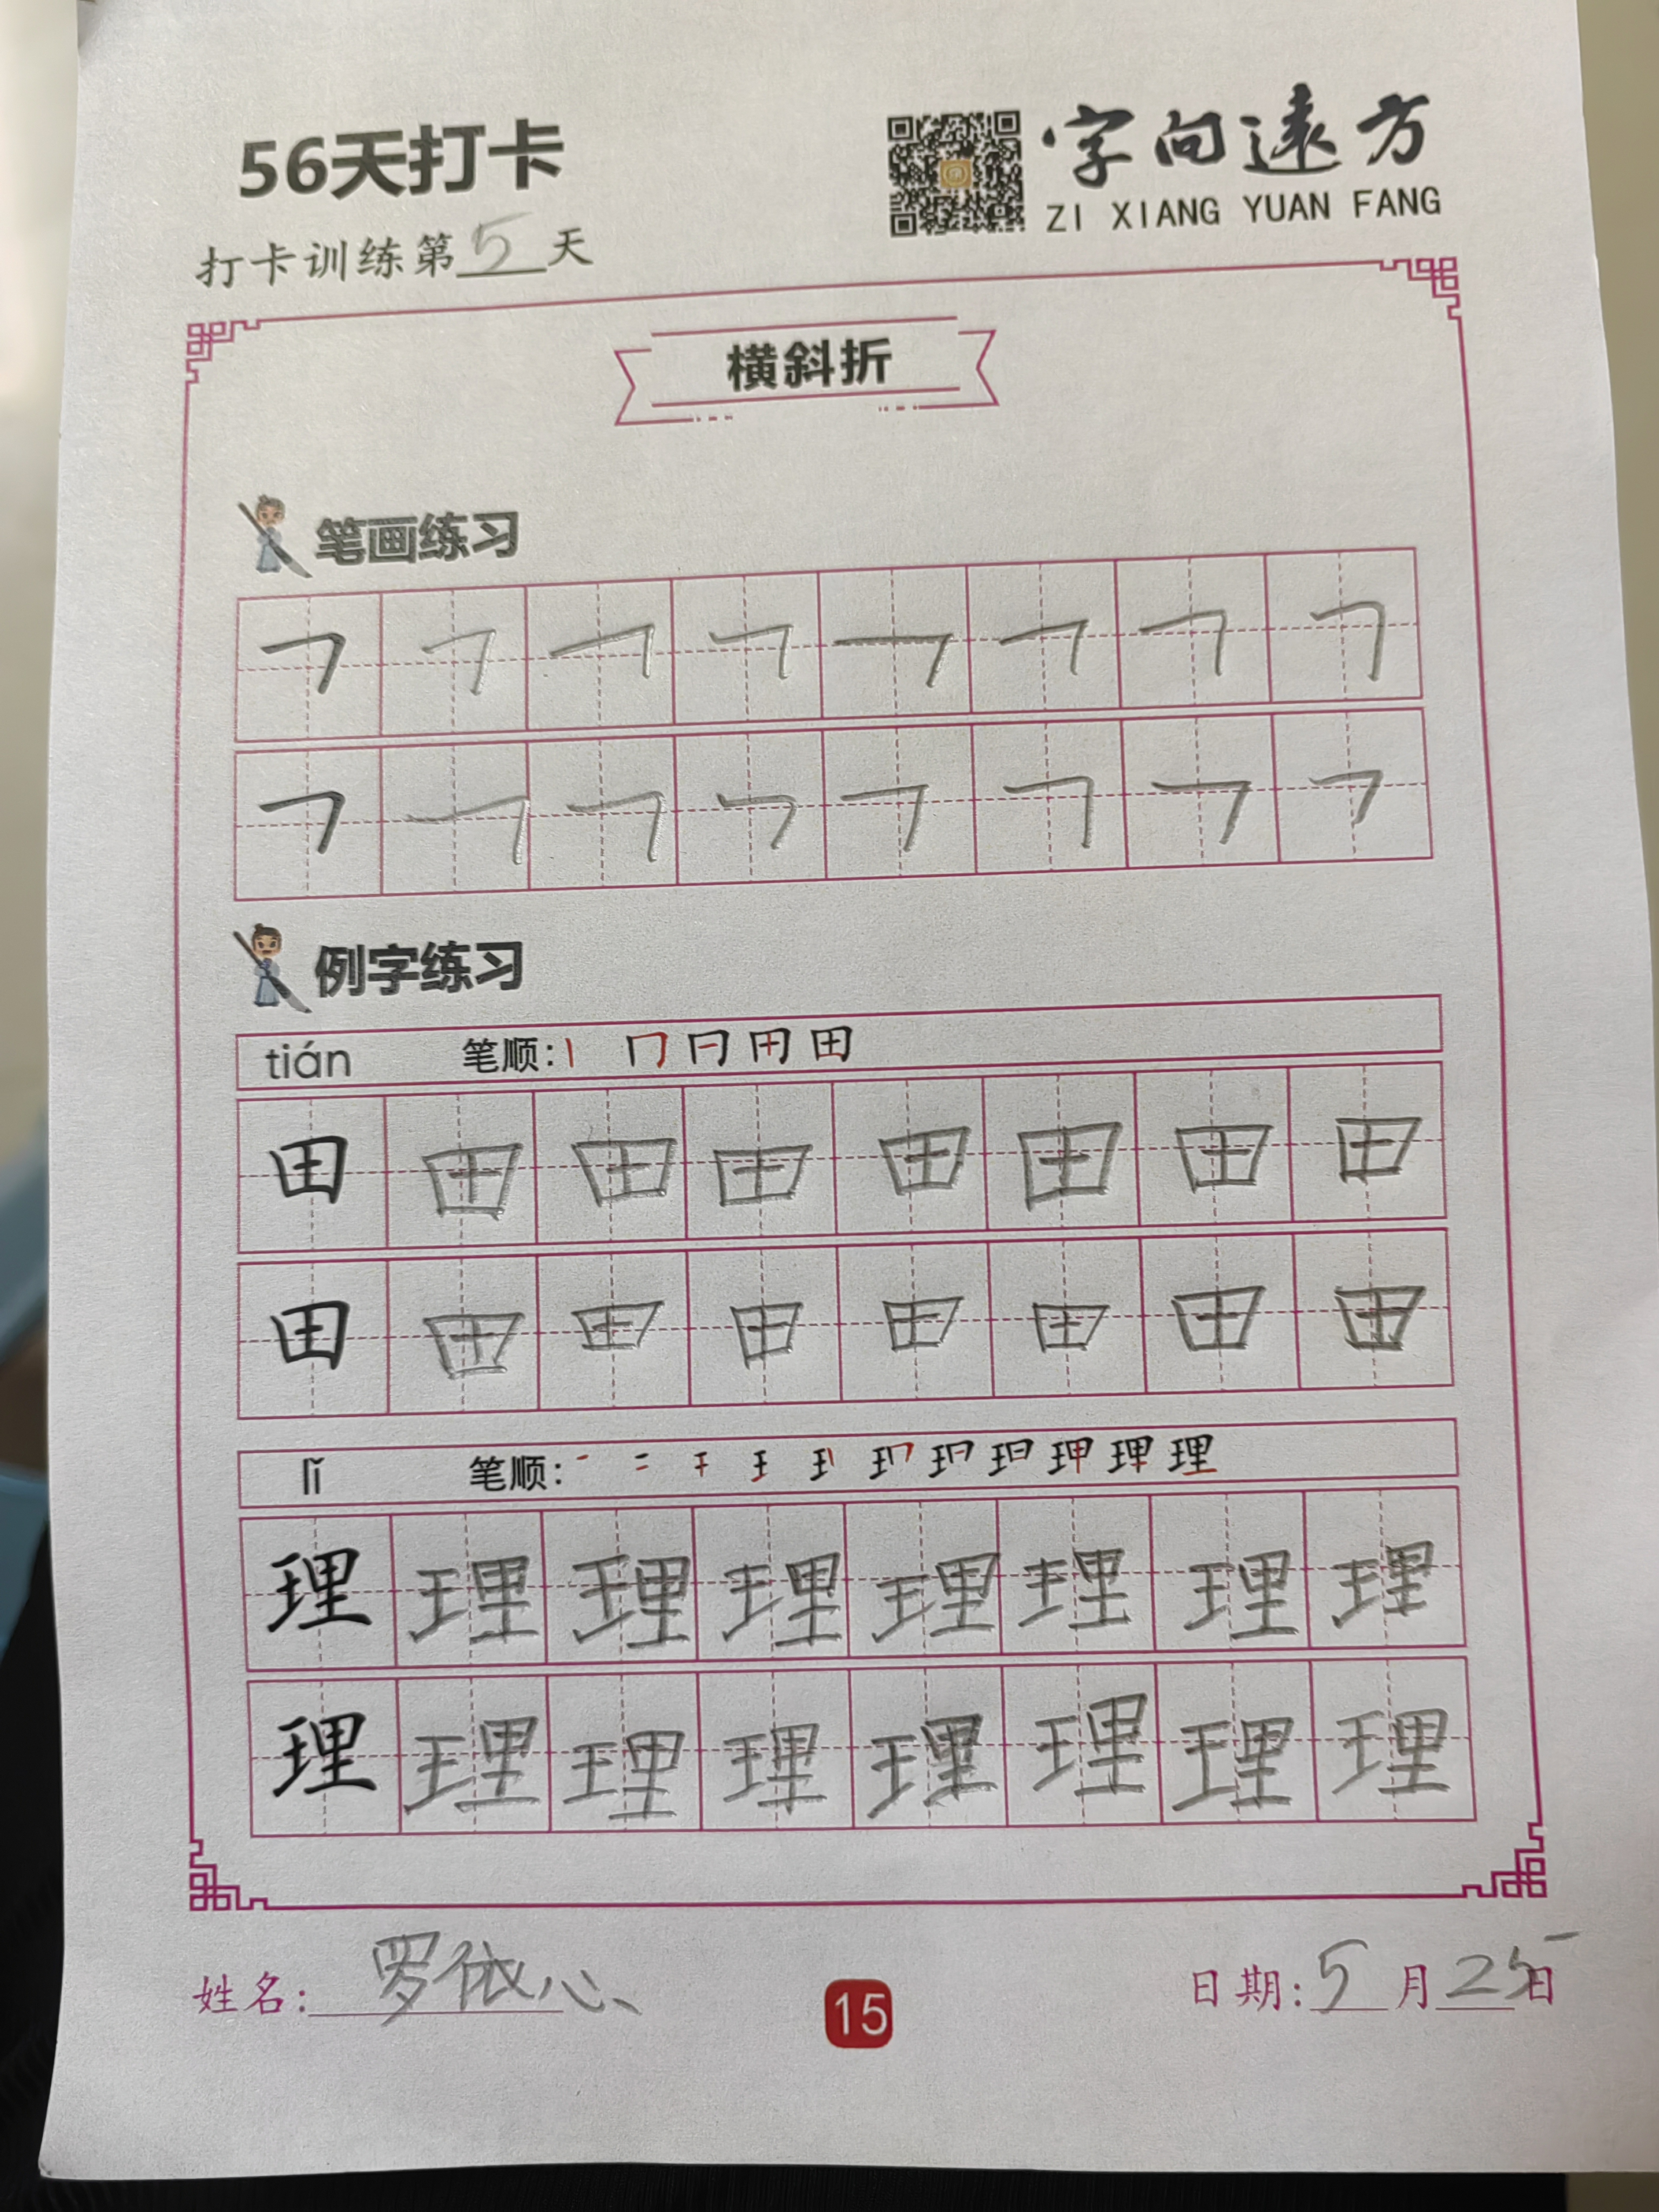 56天打卡
字向遠方
ZI XIANG YUAN FANG
打卡训练第5天
横斜折
笔画练习
例字练习
tián 笔顺: 丨 冂 日 田 田
田 田 田 田 田 田 田 田
田 田 田 田 田 田 田 田
lǐ 笔顺:
理 理 理 理 理 理 理 理
理 理 理 理 理 理 理 理
姓名: 罗依心
15
日期: 5月25日